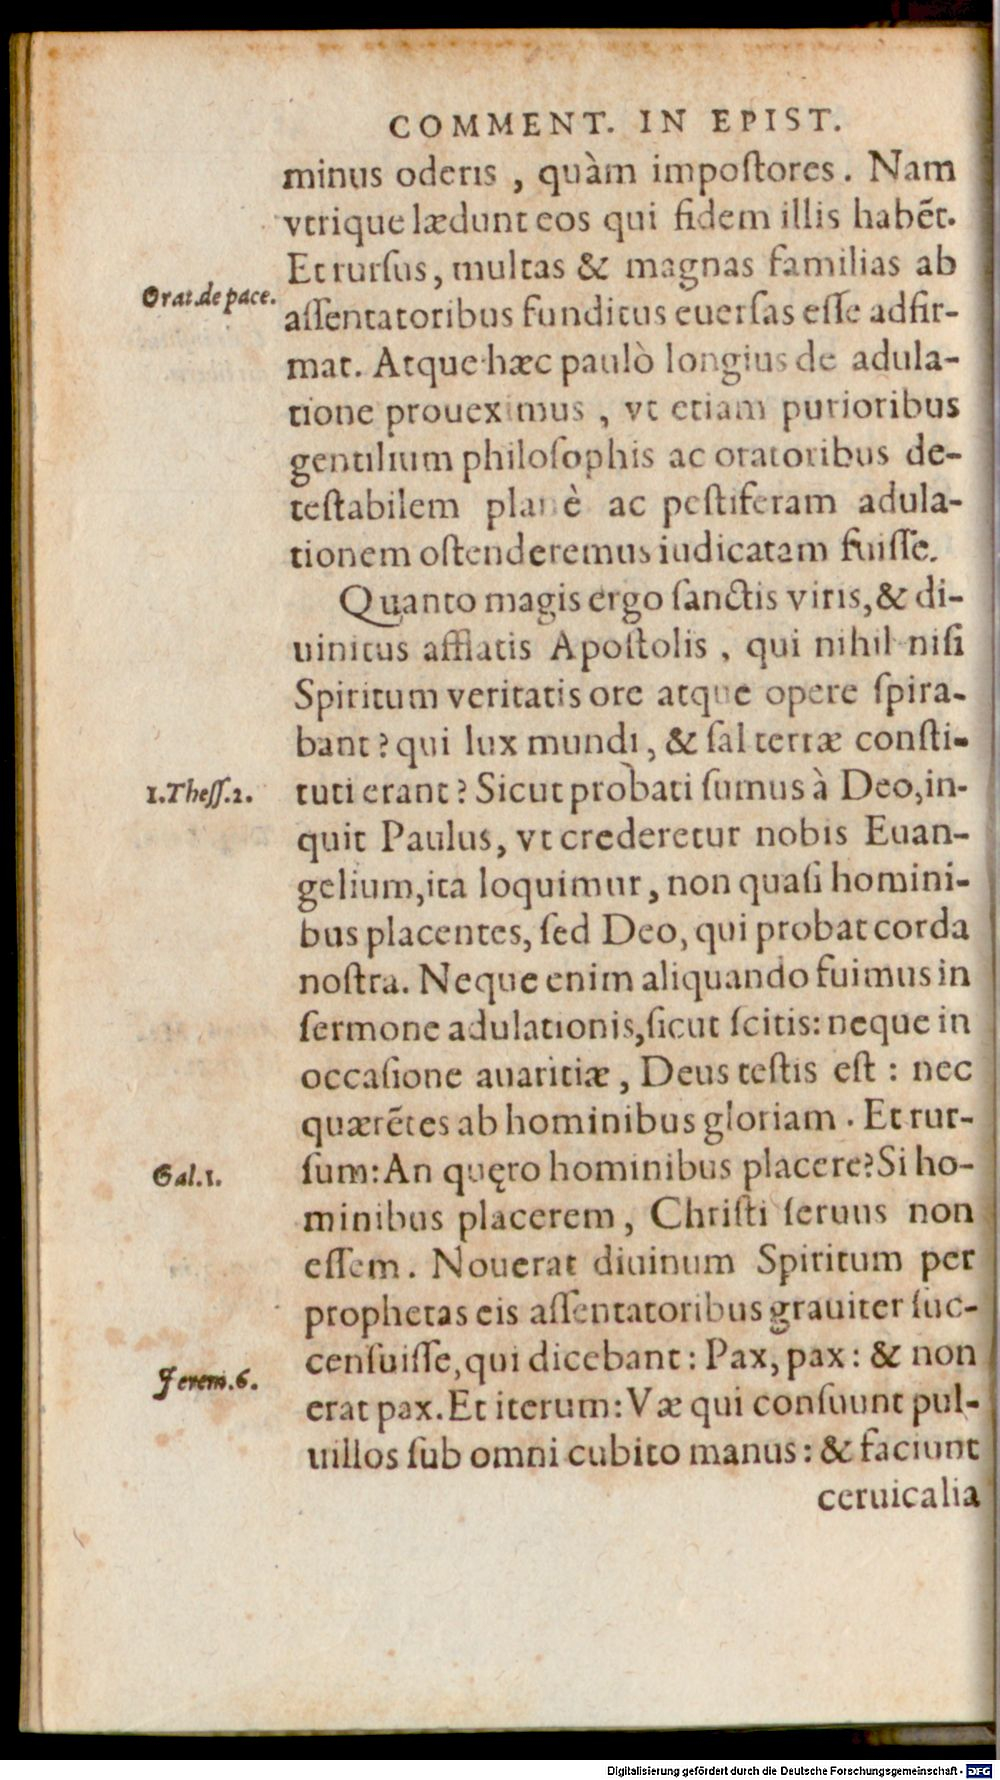 COMMENT. IN EPIST.
minus oderis , quàm impoſtores . Nam
vtrique lædunt eos qui fidem illis habẽt.
Et rurſus, multas & magnas familias ab
Orat.de pace.
aſſentatoribus funditus euerſas eſſe adfir-
mat. Atque hæc paulò longius de adula-
tione proueximus , vt etiam purioribus
gentilium philoſophis ac oratoribus de-
teſtabilem planè ac peſtiferam adula-
tionem oſtenderemus iudicatam fuiſſe.
Quanto magis ergo ſanctis viris,& di-
uinitus afflatis Apoſtolis , qui nihil niſi
Spiritum veritatis ore atque opere ſpira-
bant ? qui lux mundi , & ſal terræ conſti-
1.Theſſ.2.
tuti erant ? Sicut probati ſumus à Deo,in-
quit Paulus, vt crederetur nobis Euan-
gelium,ita loquimur , non quaſi homini-
bus placentes, ſed Deo, qui probat corda
noſtra. Neque enim aliquando fuimus in
ſermone adulationis,ſicut ſcitis: neque in
occaſione auaritiæ , Deus teſtis eſt : nec
quærẽtes ab hominibus gloriam . Et rur-
Gal.1.
ſum: An quęro hominibus placere?Si ho-
minibus placerem , Chriſti ſeruus non
eſſem . Nouerat diuinum Spiritum per
prophetas eis aſſentatoribus grauiter ſuc-
cenſuiſſe,qui dicebant : Pax, pax : & non
Jerem.6.
erat pax. Et iterum: Væ qui conſuunt pul-
uillos ſub omni cubito manus : & faciunt
ceruicalia
Digitalisierung gefördert durch die Deutsche Forschungsgemeinschaft - DFG